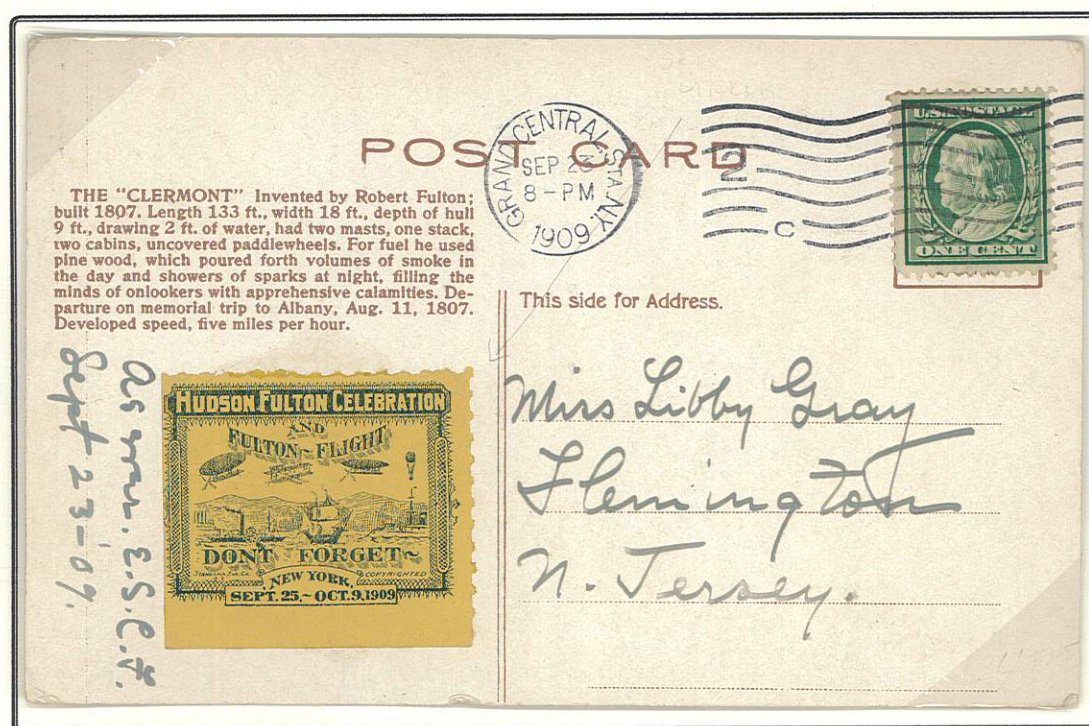 POST CARD
GRAND CENTRAL STA. N.Y.
SEP 23
8-PM
1909
2
C
U.S. POSTAGE
ONE CENT
THE "CLERMONT" Invented by Robert Fulton;
built 1807. Length 133 ft., width 18 ft., depth of hull
9 ft., drawing 2 ft. of water, had two masts, one stack,
two cabins, uncovered paddlewheels. For fuel he used
pine wood, which poured forth volumes of smoke in
the day and showers of sparks at night, filling the
minds of onlookers with apprehensive calamities. De-
parture on memorial trip to Albany, Aug. 11, 1807.
Developed speed, five miles per hour.
This side for Address.
Miss Libby Gray
Flemington
N. Jersey.
HUDSON FULTON CELEBRATION
AND
FULTON~FLIGHT
DONT FORGET~
COPYRIGHTED
NEW YORK,
SEPT. 25,~OCT. 9, 1909
as ever. E.S.C.F.
Sept 23-'09.